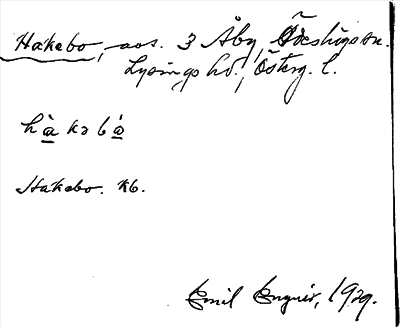 Hakebo, aos. 3 Åby, Ödeshögs sn.
Lysings hd., Österg. l.
hàkəbó
Hakebo. kb.
Emil Enquist, 1929.